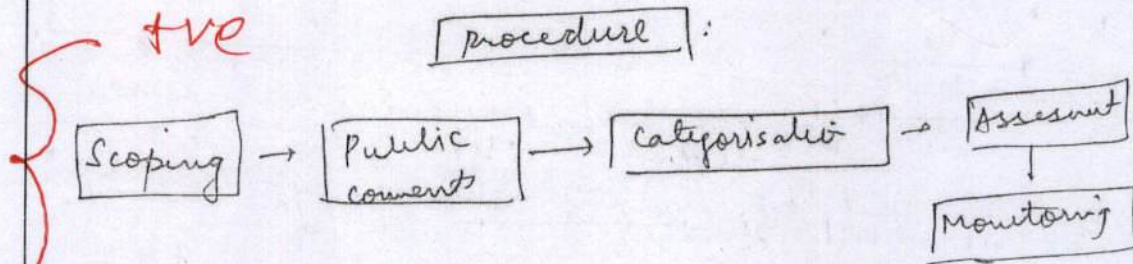 +ve
procedure :
Scoping → Public comments → Categorisation → Assesment
Monitoring